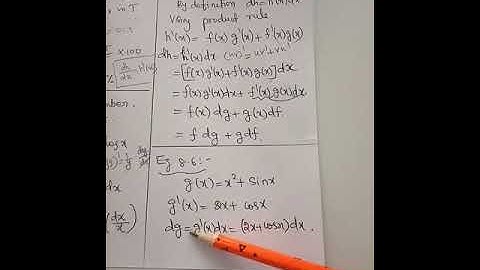 By definition dh = h'(x)dx
Using product rule
h'(x) = f(x) g'(x) + f'(x) g(x)
dh = h'(x)dx (uv)' = uv' + vu'
= [f(x) g'(x) + f'(x) g(x)] dx
= f(x) g'(x) dx + f'(x) g(x) dx
= f(x) dg + g(x) df
= f dg + g df.
Eg 8.6:-
g(x) = x² + sin x
g'(x) = 2x + cos x
dg = g'(x)dx = (2x + cos x) dx.
x 100
h'(x)
mber.
cos x
(dx/x)